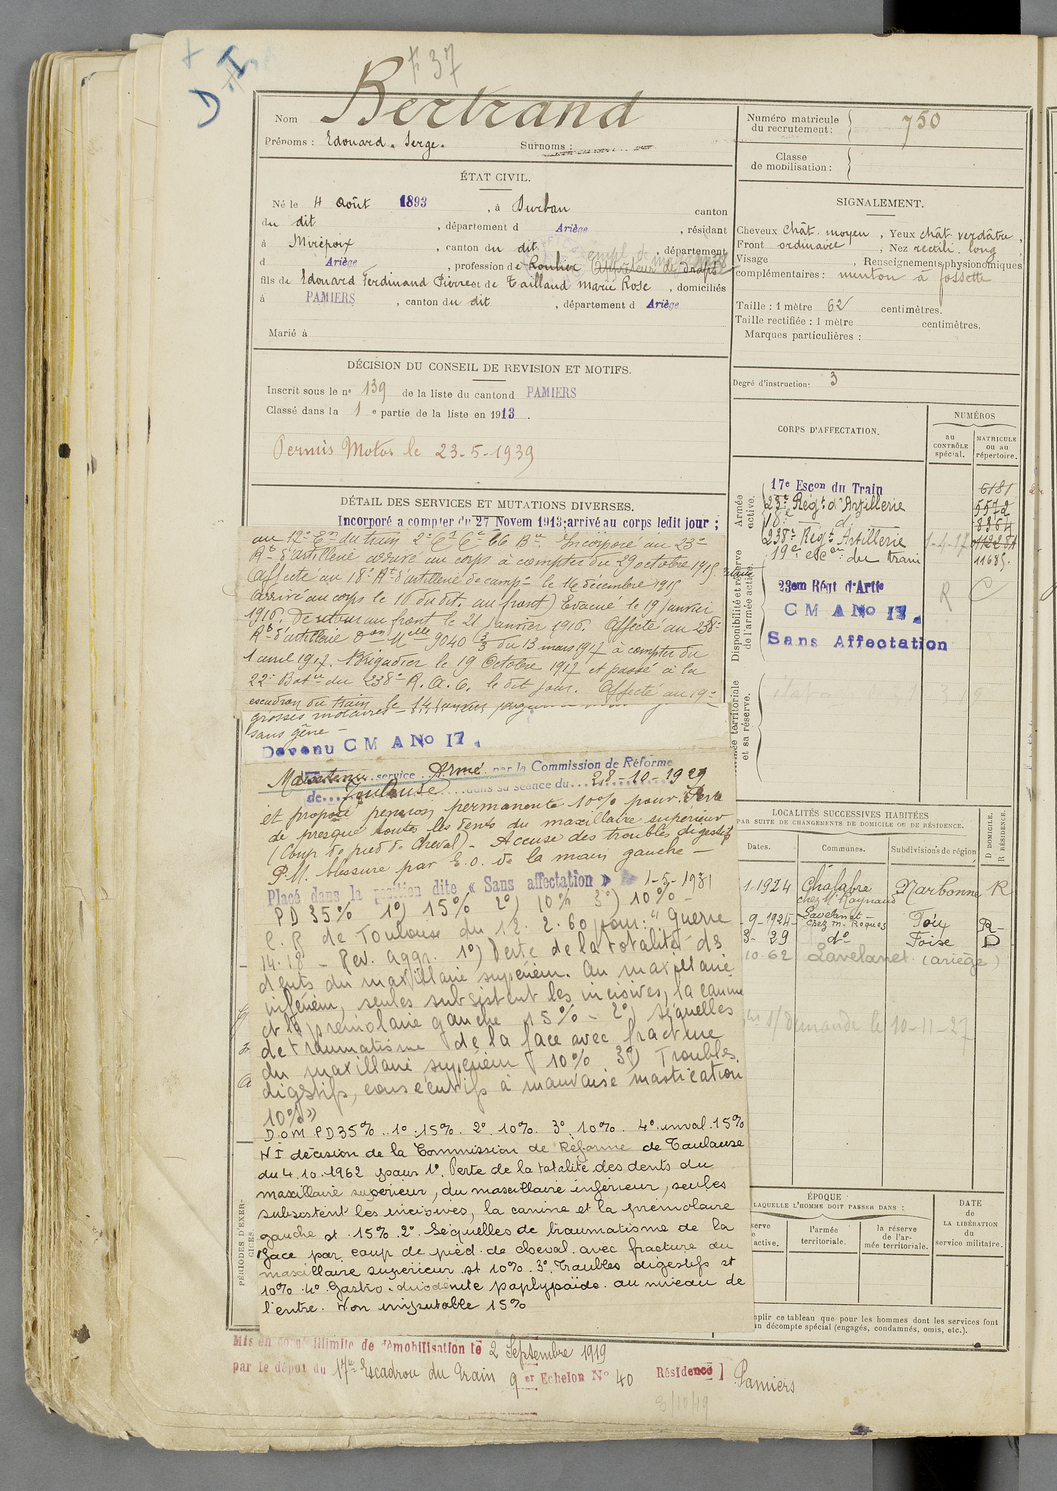 F 37
D.I
Nom Bertrand
Prénoms : Edouard. Serge. Surnoms :
ÉTAT CIVIL.
Né le 4 Août 1893, à Durban canton
du dit, département d Ariège, résidant
à Mirepoix, canton du dit, département
d Ariège, profession de Roulier
fils de Edouard Ferdinand Pierre et de Tailland Marie Rose, domiciliés
à PAMIERS, canton du dit, département d Ariège
Marié à
DÉCISION DU CONSEIL DE REVISION ET MOTIFS.
Inscrit sous le n° 139 de la liste du canton d PAMIERS
Classé dans la 1 e partie de la liste en 1913.
Permis Motos le 23-5-1939
DÉTAIL DES SERVICES ET MUTATIONS DIVERSES.
Incorporé a compter du 27 Novem 1913; arrivé au corps ledit jour ;
au 12e En du train 2e Cie Incorporé au 23e
Rt d'artillerie arrivé au corps à compter du 29 octobre 1915
Affecté au 18e Rt d'artillerie de campe le 14 décembre 1915
arrivé au corps le 16 du dit. au front) Evacué le 19 Janvier
1916. De retour au front le 21 Janvier 1916. Affecté au 238e
Rt d'artillerie don Melle 9040 3/3 du 13 mars 1917 à compter du
1 avril 1917. Brigadier le 19 Octobre 1917 et passé à la
22e Batie du 238e R.A.C. le dit jour. Affecté au 19e
escadron du train le 14 Janvier
grosses molaires
sans gêne -
Devenu C M A No 17.
Maintenu service Armé par la Commission de Réforme
de Toulouse dans sa séance du 28-10-1929
et proposé pension permanente 10% pour : Perte
de presque toutes les dents du maxillaire supérieur
(Coup de pied de cheval) - Accuse des troubles digestifs
P.M. blessure par E.O. de la main gauche -
Placé dans la position dite « Sans affectation » 1-5-1931
PD 35% 1°) 15% 2°) 10% 3°) 10% -
C.R de Toulouse du 12.2.60 pour: "Guerre
14.18 - Rev. aggr. 1°) Perte de la totalité des
dents du maxillaire supérieur. Au maxillaire
inférieur, seules subsistent les incisives, la canine
et la prémolaire gauche 15% - 2°) Séquelles
de traumatisme de la face avec fracture
du maxillaire supérieur 10% 3°) Troubles
digestifs, consécutifs à mauvaise mastication
10%"
D.O.M PD 35% . 1° .15% . 2° 10% . 3° 10% . 4° inval. 15%
NI décision de la Commission de Réforme de Toulouse
du 4.10.1962 pour 1°. Perte de la totalité des dents du
maxillaire supérieur, du maxillaire inférieur, seules
subsistent les incisives, la canine et la prémolaire
gauche at. 15% 2° Séquelles de traumatisme de la
face par coup de pied de cheval avec fracture du
maxillaire supérieur at 10% 3° Troubles digestifs at
10% 4° Gastro-duodénite au niveau de
l'entre. Non imputable 15%
PÉRIODES D'EXERCICES.
Mis en congé illimité de démobilisation le 2 Septembre 1919
par le dépot du 17e Escadron du Train 9 er Echelon N° 40 Résidence ] Pamiers
8/10/19
Numéro matricule du recrutement : 750
Classe de mobilisation :
SIGNALEMENT.
Cheveux chât. moyen, Yeux chât verdâtre,
Front ordinaire, Nez rectili. long
Visage , Renseignements physionomiques
complémentaires : menton à fossette
Taille : 1 mètre 62 centimètres.
Taille rectifiée : 1 mètre centimètres.
Marques particulières :
Degré d'instruction : 3
CORPS D'AFFECTATION.
NUMÉROS
au CONTRÔLE spécial.
MATRICULE ou au répertoire.
Armée active.
17e Escon du Train 6181
23e Régt d'Artillerie 5572
18e d° 3364
238e Régt Artillerie 1-4-17
19e escon du train 11685.
Disponibilité et réserve de l'armée active.
23em Régt d'Artie R C
C M A No 17.
Sans Affectation
Armée territoriale et sa réserve.
LOCALITÉS SUCCESSIVES HABITÉES
PAR SUITE DE CHANGEMENTS DE DOMICILE OU DE RÉSIDENCE.
Dates. Communes. Subdivisions de région D DOMICILE. R RÉSIDENCE.
1-1924 Chalabre chez M. Raynaud Narbonne R
-9-1924- Lavelanet - chez M. Roques Foix R-
3- 29 d° Foix D
10-62 Lavelanet (ariège)
s/ Demande le 10-11-27
ÉPOQUE
LAQUELLE L'HOMME DOIT PASSER DANS :
l'armée territoriale.
la réserve de l'armée territoriale.
DATE de LA LIBÉRATION du service militaire.
mplir ce tableau que pour les hommes dont les services font
un décompte spécial (engagés, condamnés, omis, etc.).